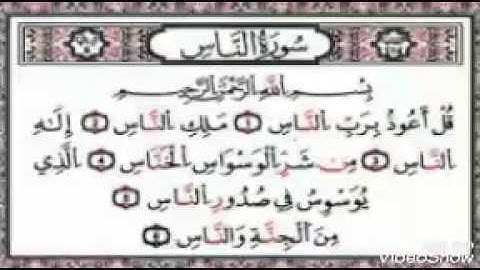 سُورَةُ النَّاسِ
بِسْمِ اللَّهِ الرَّحْمَٰنِ الرَّحِيمِ
قُلْ أَعُوذُ بِرَبِّ النَّاسِ ۝١ مَلِكِ النَّاسِ ۝٢ إِلَٰهِ
النَّاسِ ۝٣ مِن شَرِّ الْوَسْوَاسِ الْخَنَّاسِ ۝٤ الَّذِي
يُوَسْوِسُ فِي صُدُورِ النَّاسِ ۝٥
مِنَ الْجِنَّةِ وَالنَّاسِ ۝٦
VideoShow